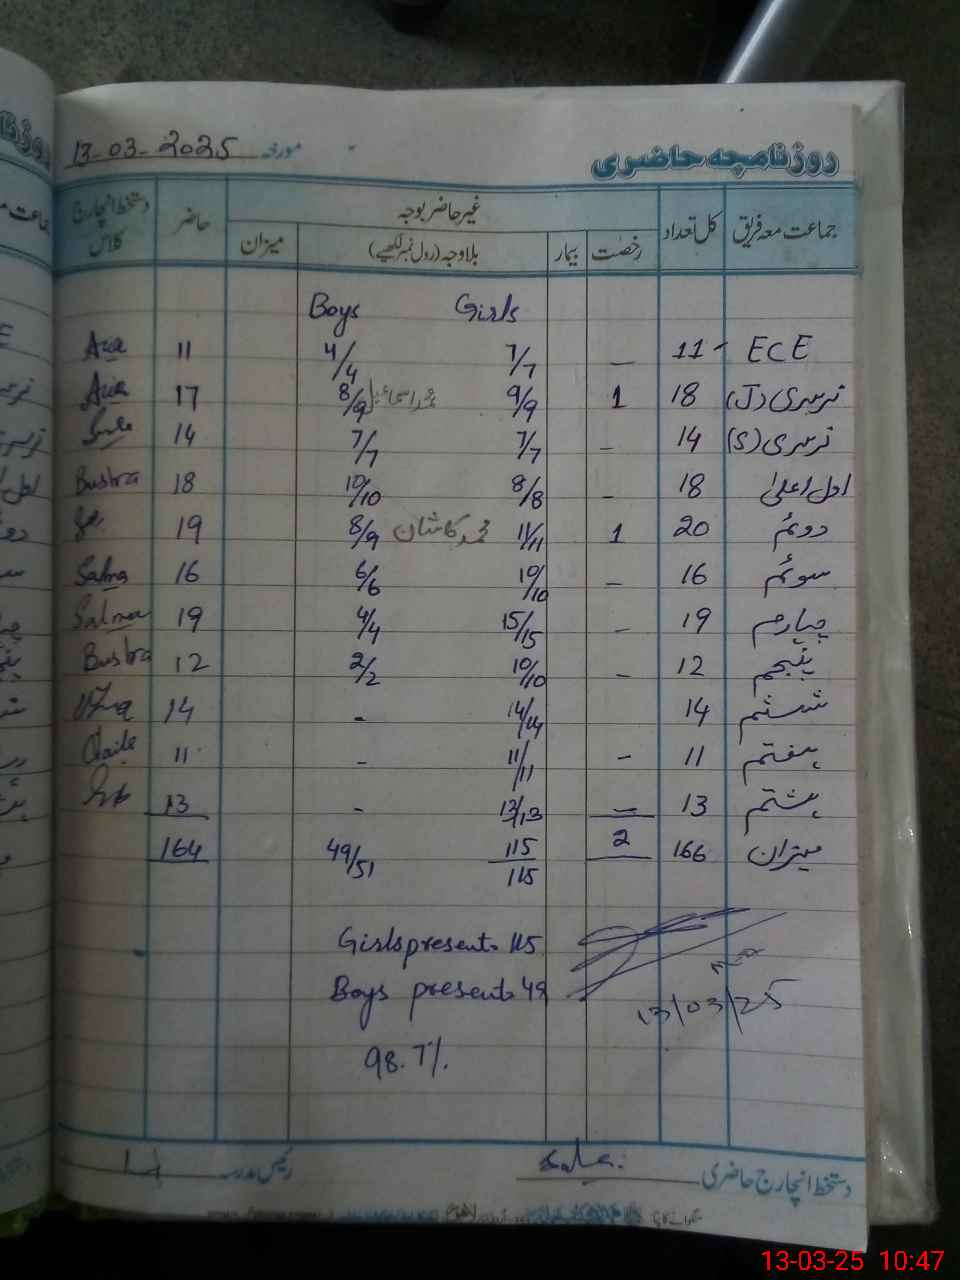 روزنامچہ حاضری مورخہ 13-03-2025
جماعت معہ فریق کل تعداد غیر حاضر بوجہ حاضر دستخط انچارج کلاس
رخصت بیمار بلاوجہ (رول نمبر لکھیے) میزان
Boys Girls
ECE 11 - 7/7 4/4 11
نرسری (J) 18 1 9/9 محمد اسماعیل 8/9 17
نرسری (S) 14 - 7/7 7/7 14
اول اعلیٰ 18 - 8/8 10/10 18 Bushra
دوئم 20 1 11/11 محمد کاشان 8/9 19
سوئم 16 - 10/10 6/6 16 Salma
چہارم 19 - 15/15 4/4 19 Salma
پنجم 12 - 10/10 2/2 12 Bushra
ششم 14 14/14 - 14
ہفتم 11 - 11/11 - 11
ہشتم 13 - 13/13 - 13
میزان 166 2 115/115 49/51 164
Girls present 115
Boys present 49
13/03/25
98.7%
دستخط انچارج حاضری رئیس مدرسہ
13-03-25 10:47